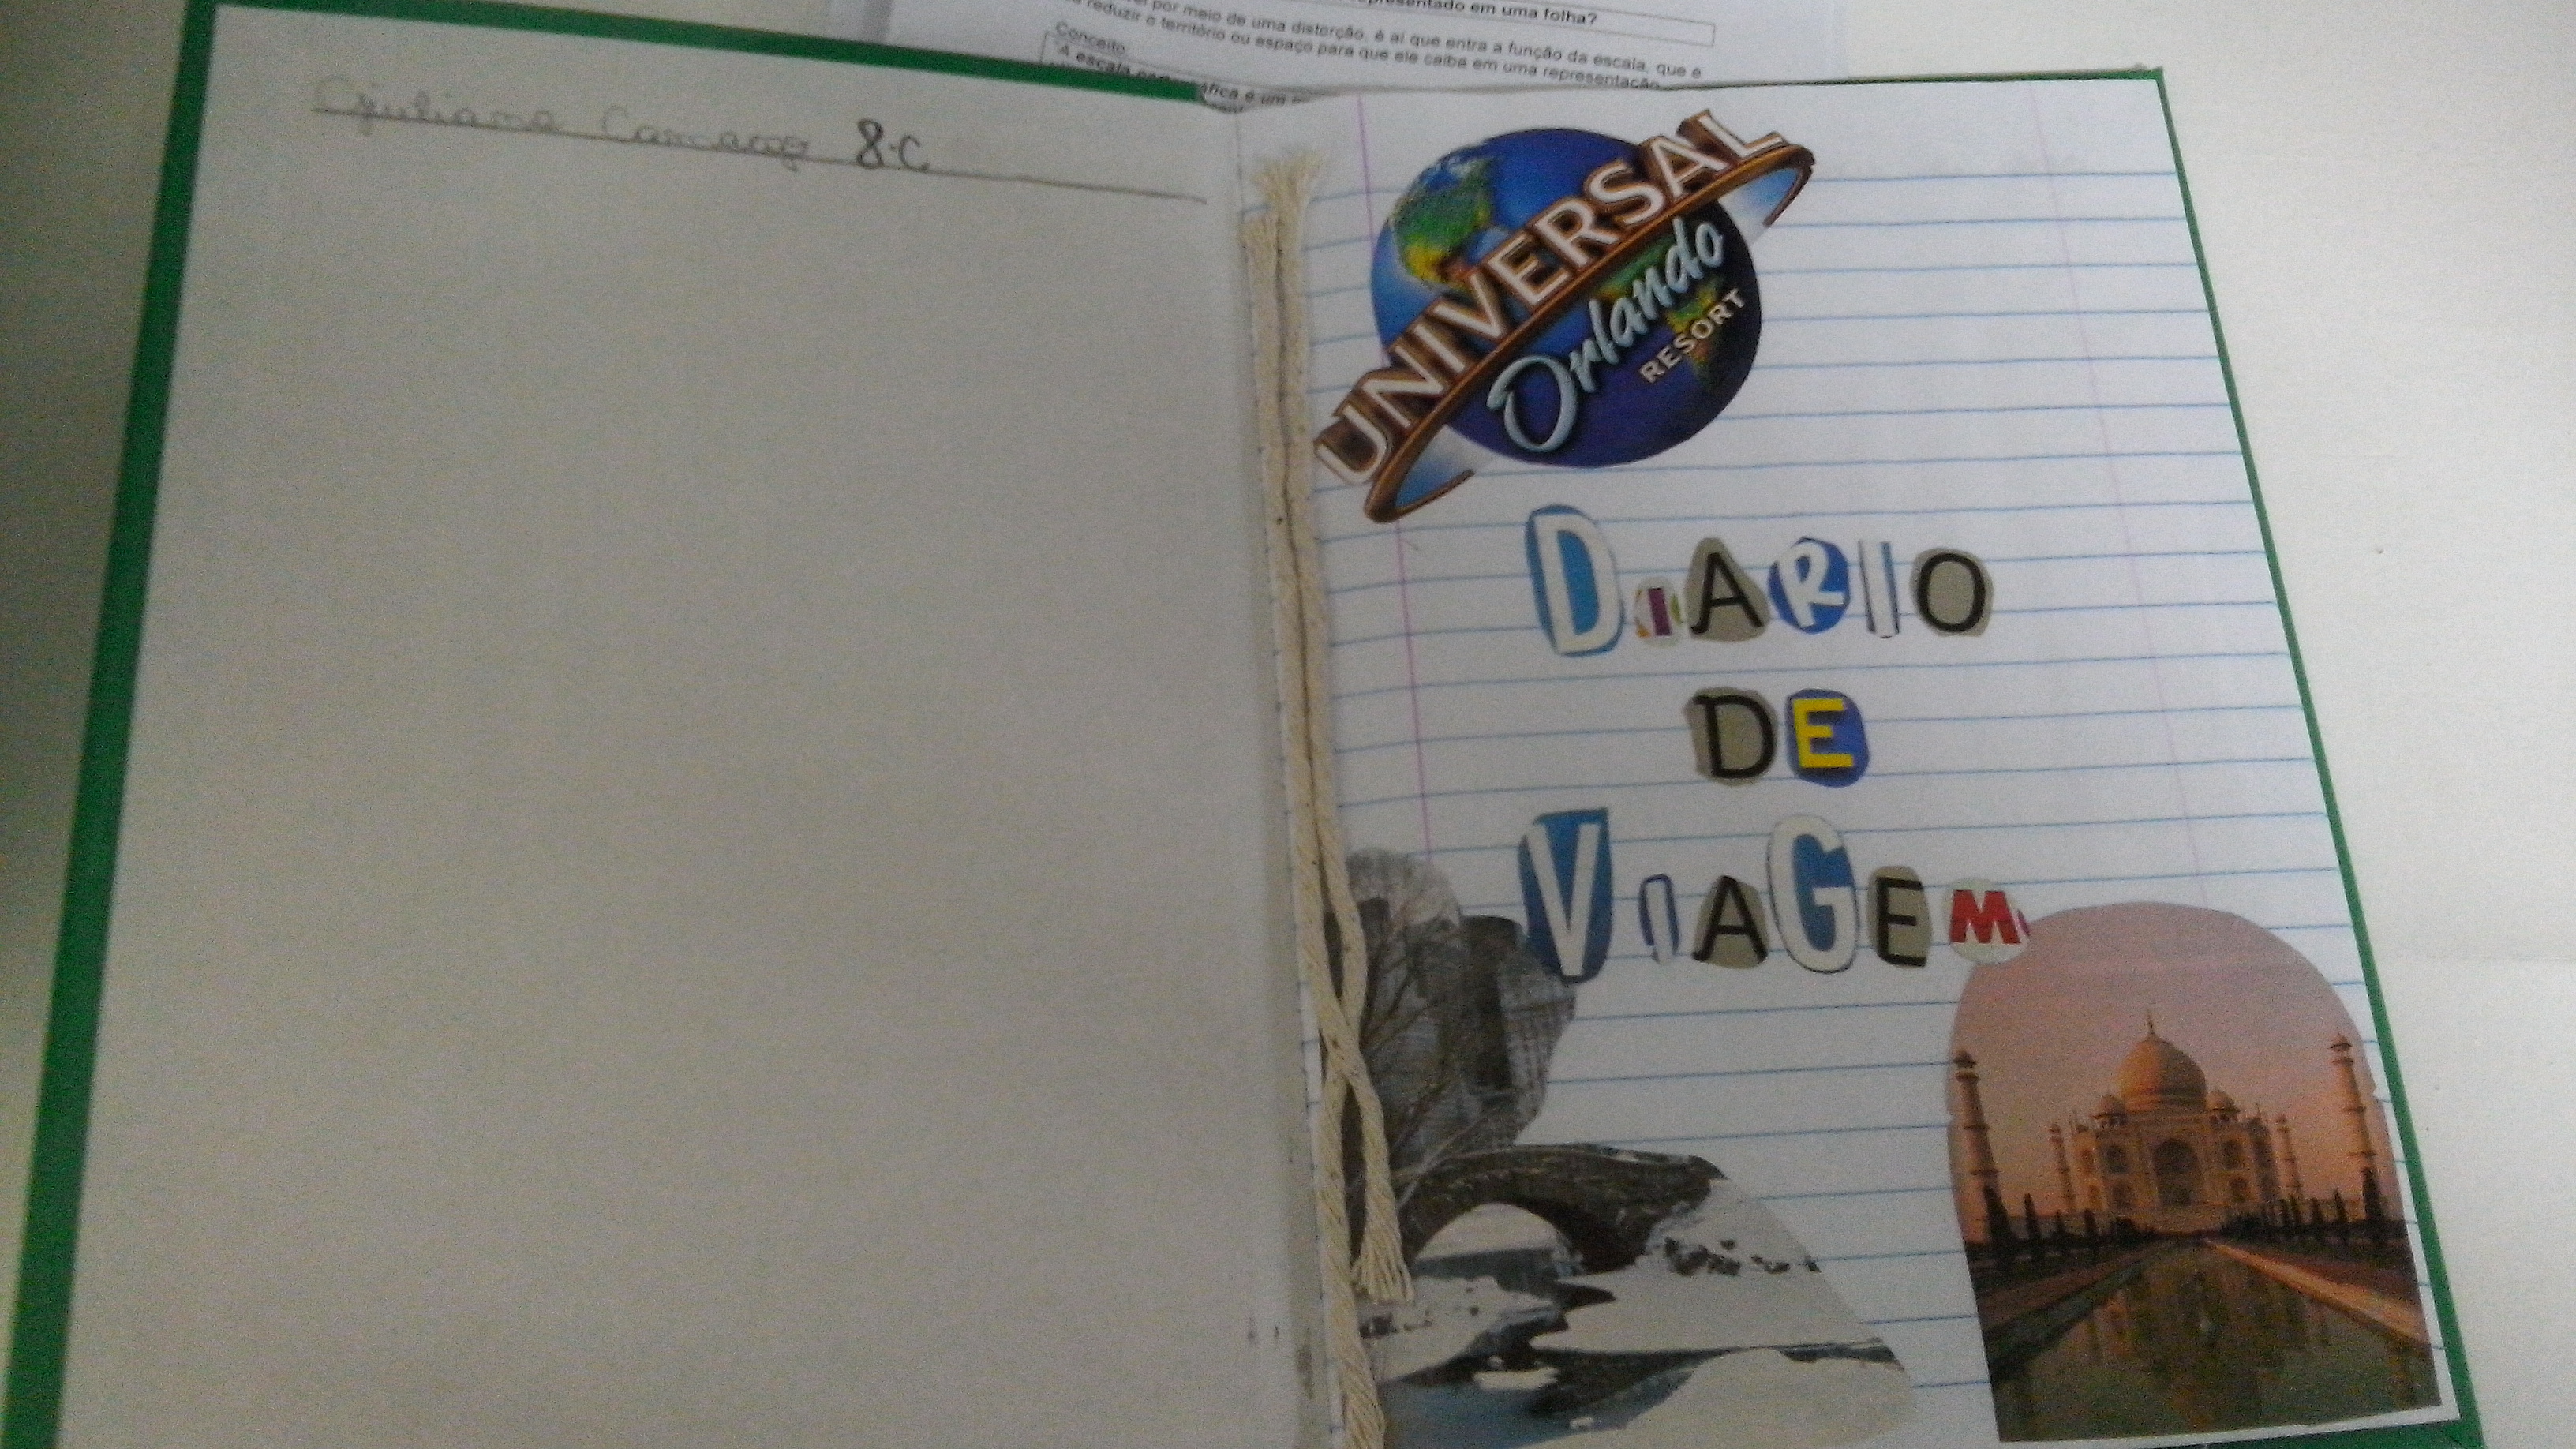 presentado em uma folha?
por meio de uma distorção, é aí que entra a função da escala, que é
reduzir o território ou espaço para que ele caiba em uma representação
Conceito
"A escala
áfica é um
Giuliana 8.C
UNIVERSAL
Orlando
RESORT
DiARIO
DE
ViAGEM